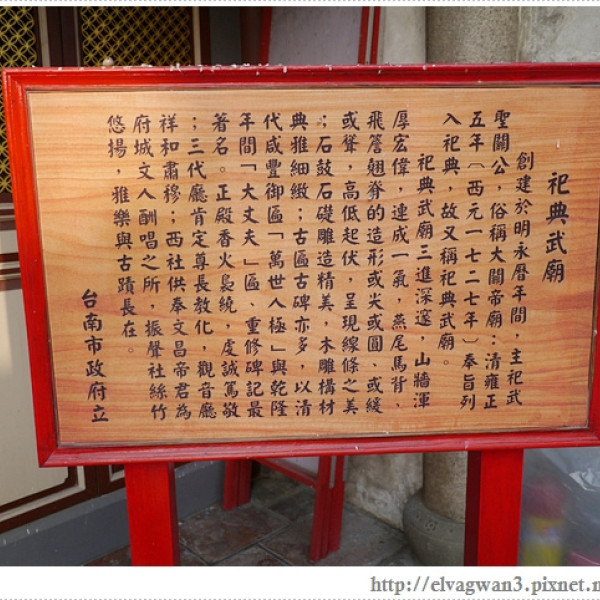 祀典武廟
創建於明永曆年間，主祀武
聖關公，俗稱大關帝廟；清雍正
五年（西元一七二七年）奉旨列
入祀典，故又稱祀典武廟。
祀典武廟三進深邃，山牆渾
厚宏偉，連成一氣，燕尾馬背、
飛簷翹脊的造形或尖或圓、或緩
或聳，高低起伏，呈現線條之美
；石鼓石礎雕造精美，木雕構材
典雅細緻；古匾古碑亦多，以清
代咸豐御匾「萬世人極」與乾隆
年間「大丈夫」匾、重修碑記最
著名。正殿香火裊繞，虔誠篤敬
；三代廳肯定尊長教化，觀音廳
祥和肅穆；西社供奉文昌帝君為
府城文人酬唱之所，振聲社絲竹
悠揚，雅樂與古蹟長在。
台南市政府立
http://elvagwan3.pixnet.n